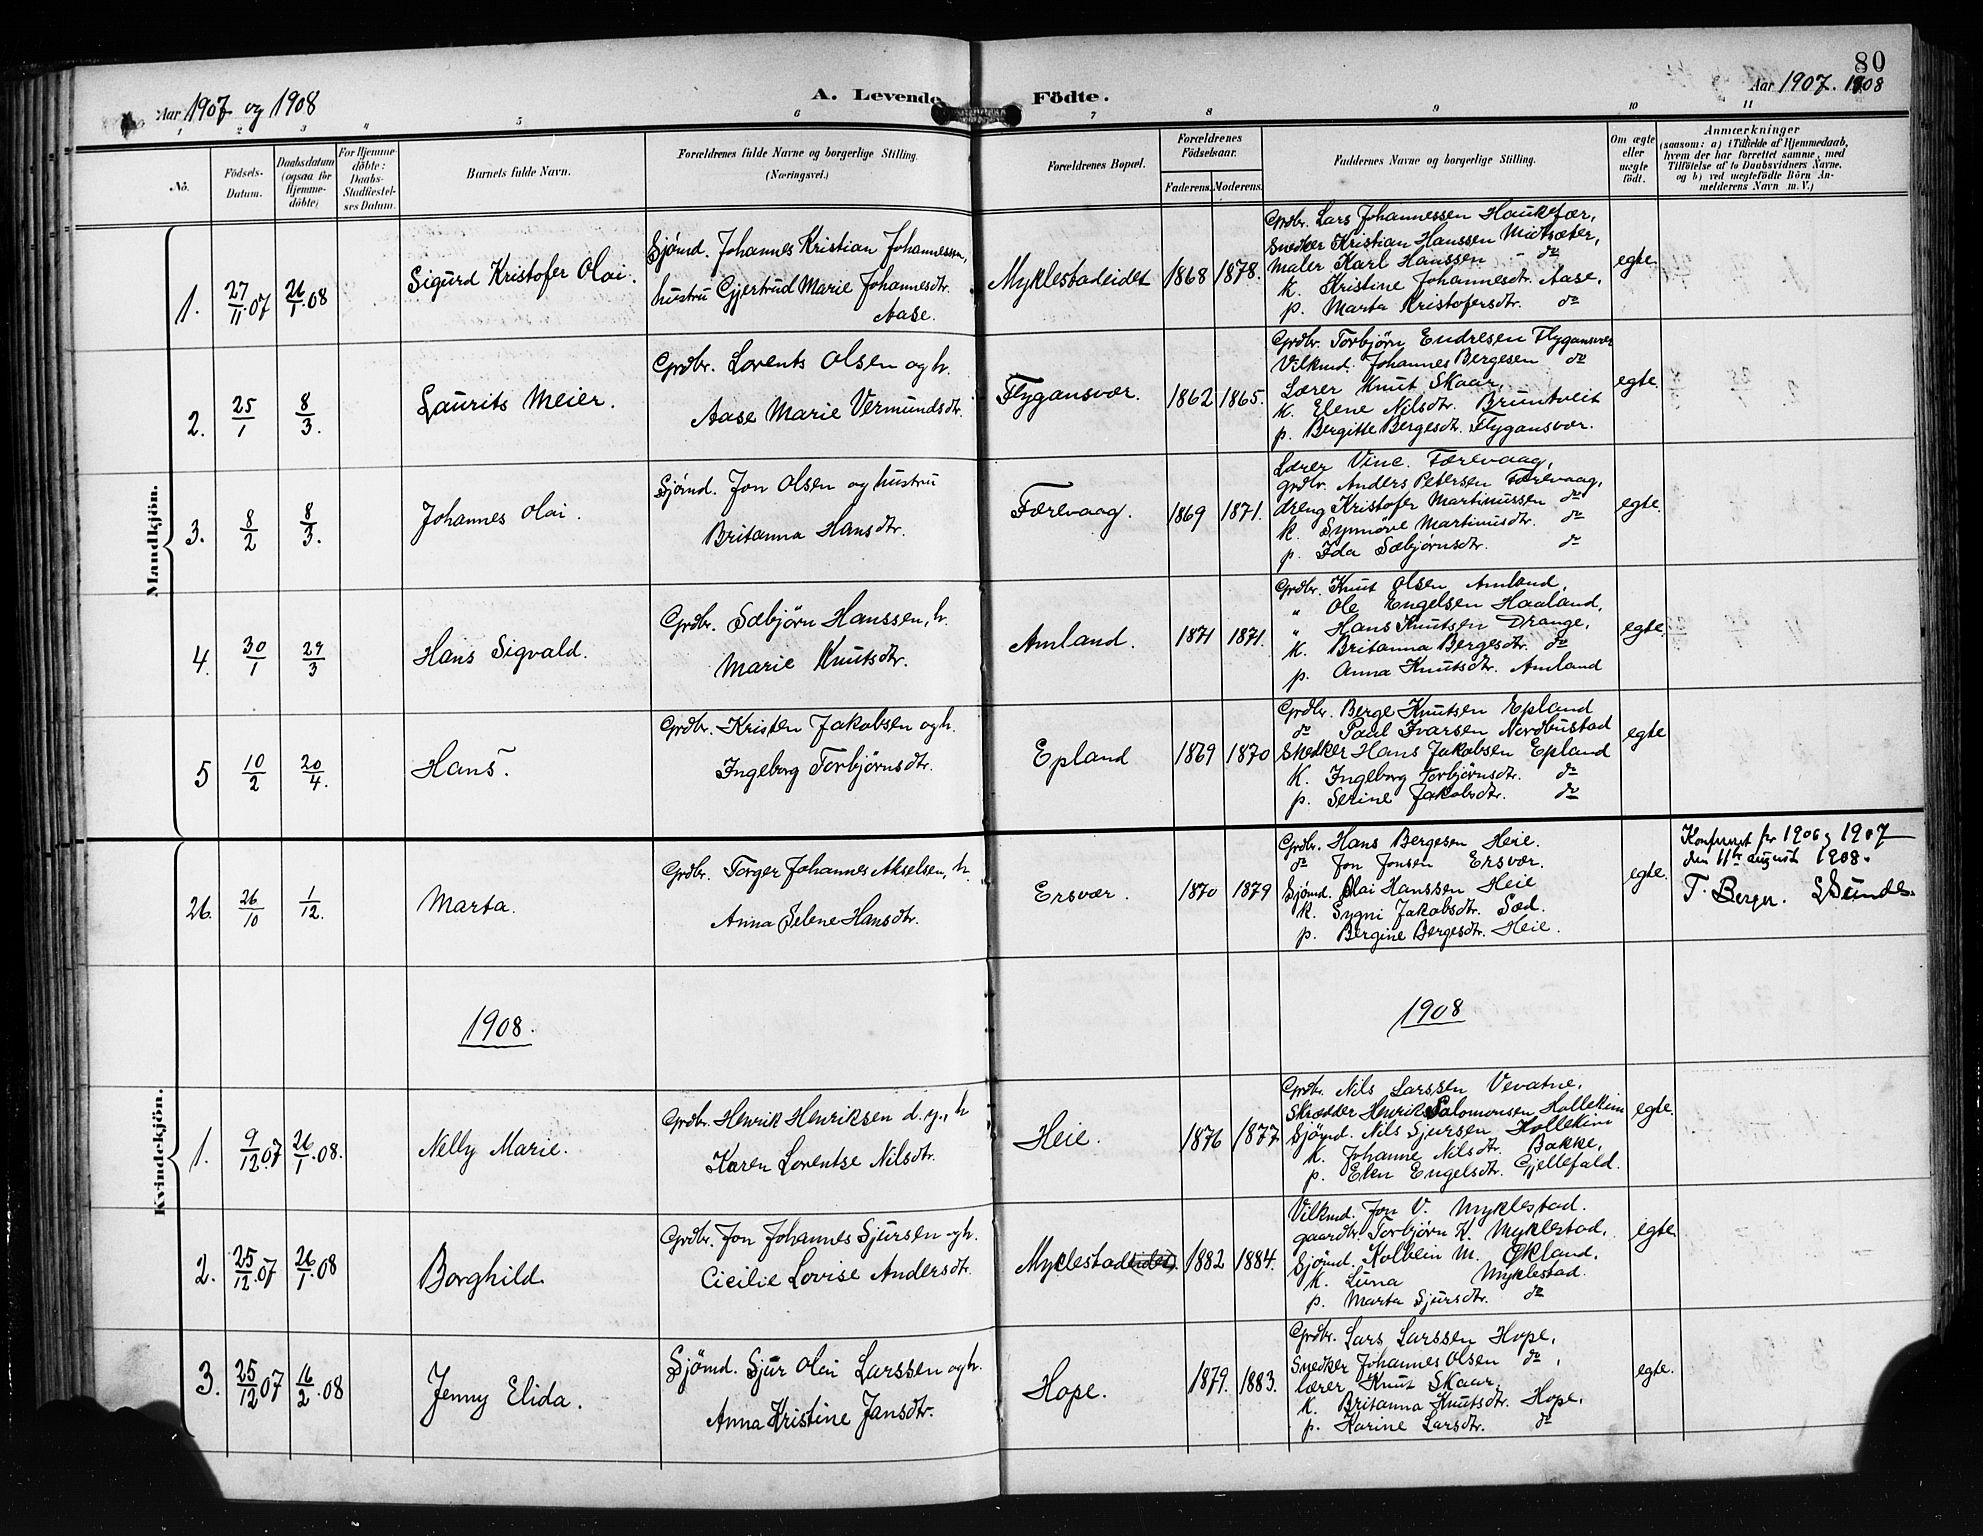 80
Aar 1907 og 1908
A. Levende Födte.
Aar 1907. 1908
1 2 3 4 5 6 7 8 9 10 11
No. Födsels-Datum. Daabsdatum (ogsaa for Hjemme-döbte) For Hjemme-döbte: Daabs-Stadfæstel-ses Datum. Barnets fulde Navn. Forældrenes fulde Navne og borgerlige Stilling. (Næringsvei.) Forældrenes Bopæl. Forældrenes Födselsaar. Faderens. Moderens. Faddernes Navne og borgerlige Stilling. Om ægte eller uægte födt. Anmærkninger
(saasom: a) i Tilfælde af Hjemmedaab,
hvem der har forrettet samme, med
Tilföielse af to Daabsvidners Navne.
og b) ved uægtefödte Börn An-
melderens Navn m. V.)
Mandkjön.
1. 27/11 07 26/1 08 Sigurd Kristofer Olai. Sjömd. Johannes Kristian Johannessen,
hustru Gjertrud Marie Johannesdtr.
Aase.
Myklestadeidet 1868 1878.
Grdbr. Lars Johannessen Haukefær,
Snedker Kristian Hanssen Midtsæter,
Maler Karl Hanssen - do
K. Kristine Johannesdtr. Aase,
p. Marta Kristofersdtr. do
egte.
2. 25/1 8/3. Laurits Meier. Grdbr. Lorents Olsen og h.
Aase Marie Vermundsdtr.
Flygansvær. 1862 1865.
Grdbr. Torbjörn Endresen Flygansvær
Vilkmd. Johannes Bergesen do
Lærer Knut Skaar,
K. Elene Nilsdtr. Bruntveit
p. Bergitte Bergesdtr. Flygansvær.
egte.
3. 8/2 8/3. Johannes Olai. Sjömd. Jon Olsen og hustru
Britanna Hansdtr.
Færevaag. 1869 1871.
Lærer Vinc. Færevaag,
grdbr. Anders Petersen Færevaag,
dreng Kristofer Martinussen do
K. Synnöve Martinusdtr. do
p. Ida Sæbjörnsdtr. do
egte.
4. 30/1 29/3 Hans Sigvald. Grdbr. Sæbjörn Hanssen, h.
Marie Knutsdtr.
Amland. 1871 1871.
Grdbr. Knut Olsen Amland,
" Ole Engelsen Haaland,
" Hans Knutsen Drange,
K. Britanna Bergesdtr. do
p. Anna Knutsdtr. Amland
egte.
5 10/2 20/4. Hans. Grdbr. Kristen Jakobsen og h.
Ingeborg Torbjörnsdtr.
Epland 1869 1870
Grdbr. Berge Knutsen Epland
do Paul Ivarsen Nordhustad
Snedker Hans Jakobsen Epland
K. Ingeborg Torbjörnsdtr. do
p. Serine Jakobsdtr. do
egte
Kvindekjön.
26. 26/10 1/12. Marta. Grdbr. Torger Johannes Akselsen, h.
Anna Selene Hansdtr.
Ersvær. 1870 1879
Grdbr. Hans Bergesen Heie.
do Jon Jonsen Ersvær.
Sjömd. Olai Hanssen Heie
K. Sygni Jakobsdtr. Sæd.
p. Bergine Bergesdtr. Heie.
egte.
Konfereret for 1906 og 1907
den 11te august 1908.
T. Berger. S Sunde.
1908. 1908
1. 9/12 07 26/1 08. Nelly Marie. Grdbr. Henrik Henriksen d. y., h
Karen Lorentse Nilsdtr.
Heie. 1876 1877
Grdbr. Nils Larssen Vevatne,
Skrædder Henrik Salomonsen Hallekim
Sjömd. Nils Sjursen Hollekim
K. Johanne Nilsdtr. Bakke,
p. Elen Engelsdtr. Gjellefald.
egte.
2. 25/12 07 26/1 08 Borghild. Grdbr. Jon Johannes Sjursen og h.
Cicilie Lovise Andersdtr.
Myklestad(eidet). 1882 1884.
Vilkmd. Jon V. Myklestad.
gaardbr. Torbjörn K. Myklestad,
Sjömd. Kolbein M. Økland.
K. Luna Myklestad.
p. Marta Sjursdtr. do
egte.
3. 25/12 07 16/2 08 Jenny Elida. Sjömd. Sjur Olai Larssen og h.
Anna Kristine Jansdtr.
Hope. 1879. 1883.
Grdbr. Lars Larssen Hope,
Snedker Johannes Olsen do,
lærer Knut Skaar.
K. Britanna Knutsdtr. Hope,
p. Karine Larsdtr. do
egte.